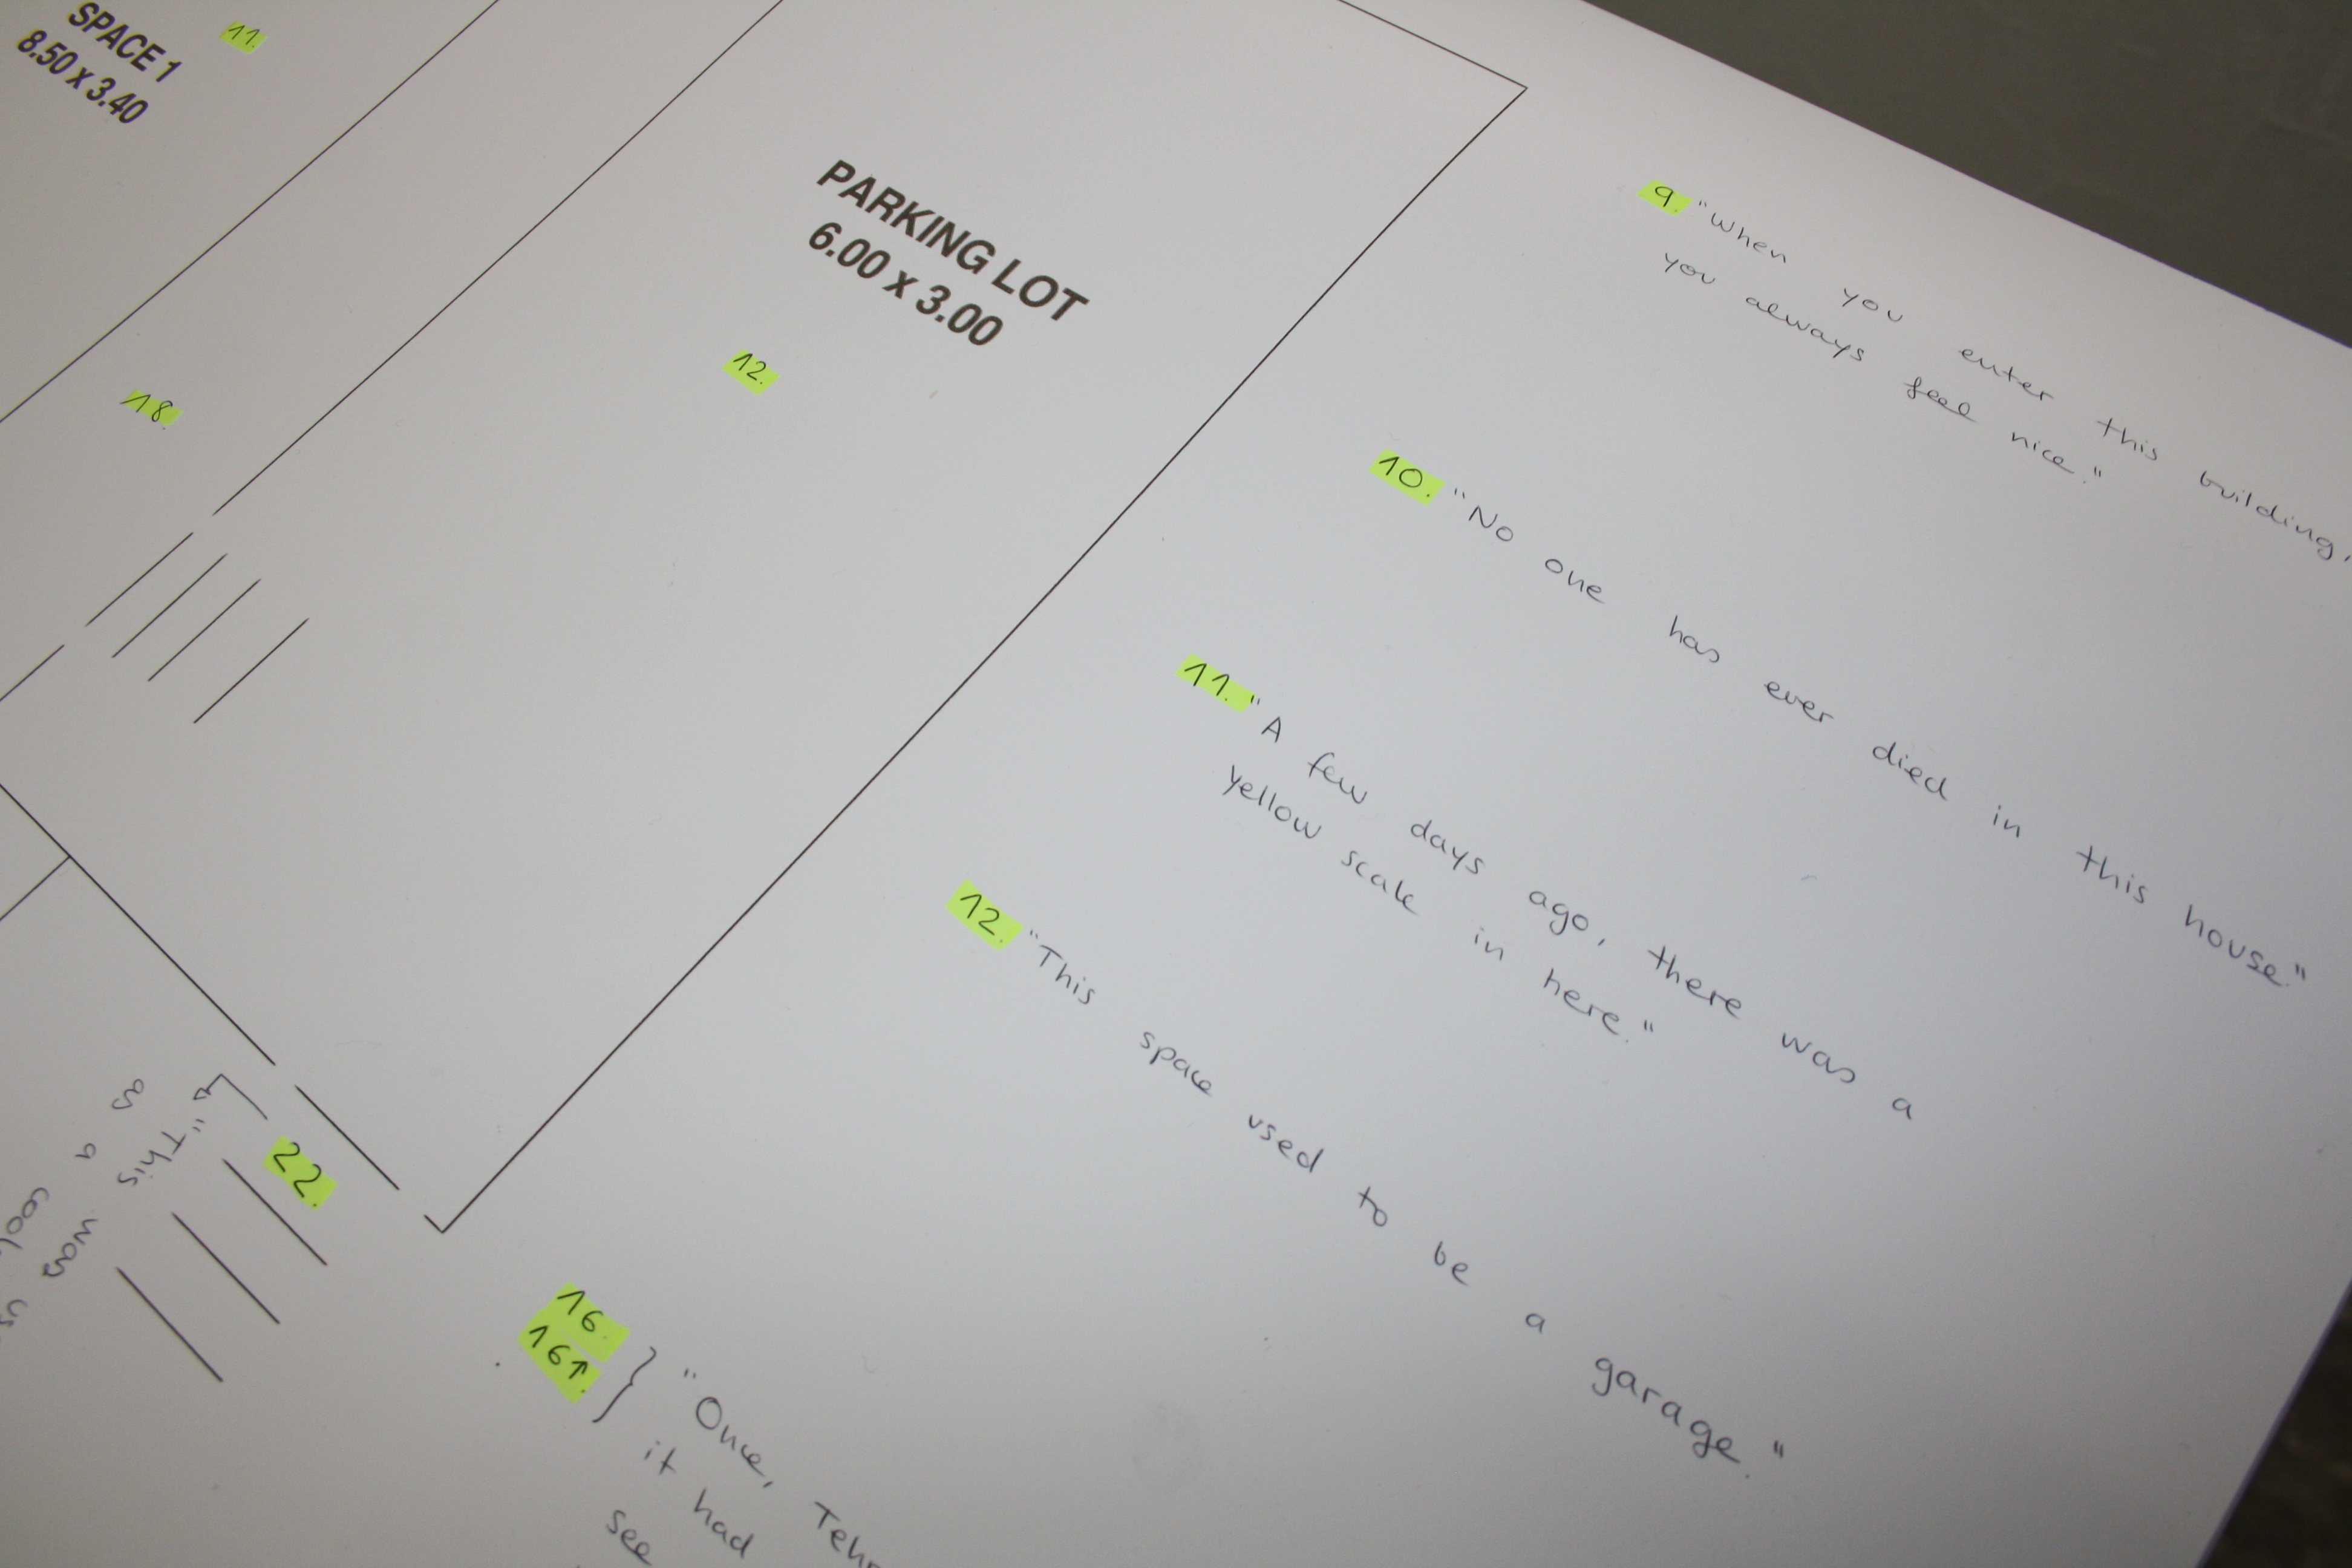 SPACE 1
8.50 x 3.40
11.
18.
PARKING LOT
6.00 x 3.00
12.
9. "When you enter this building,
you always feel nice."
10. "No one has ever died in this house."
11. "A few days ago, there was a
yellow scale in here."
12. "This space used to be a garage."
22.
"This was
as a
16.
16↑.
"Once,
it had
see